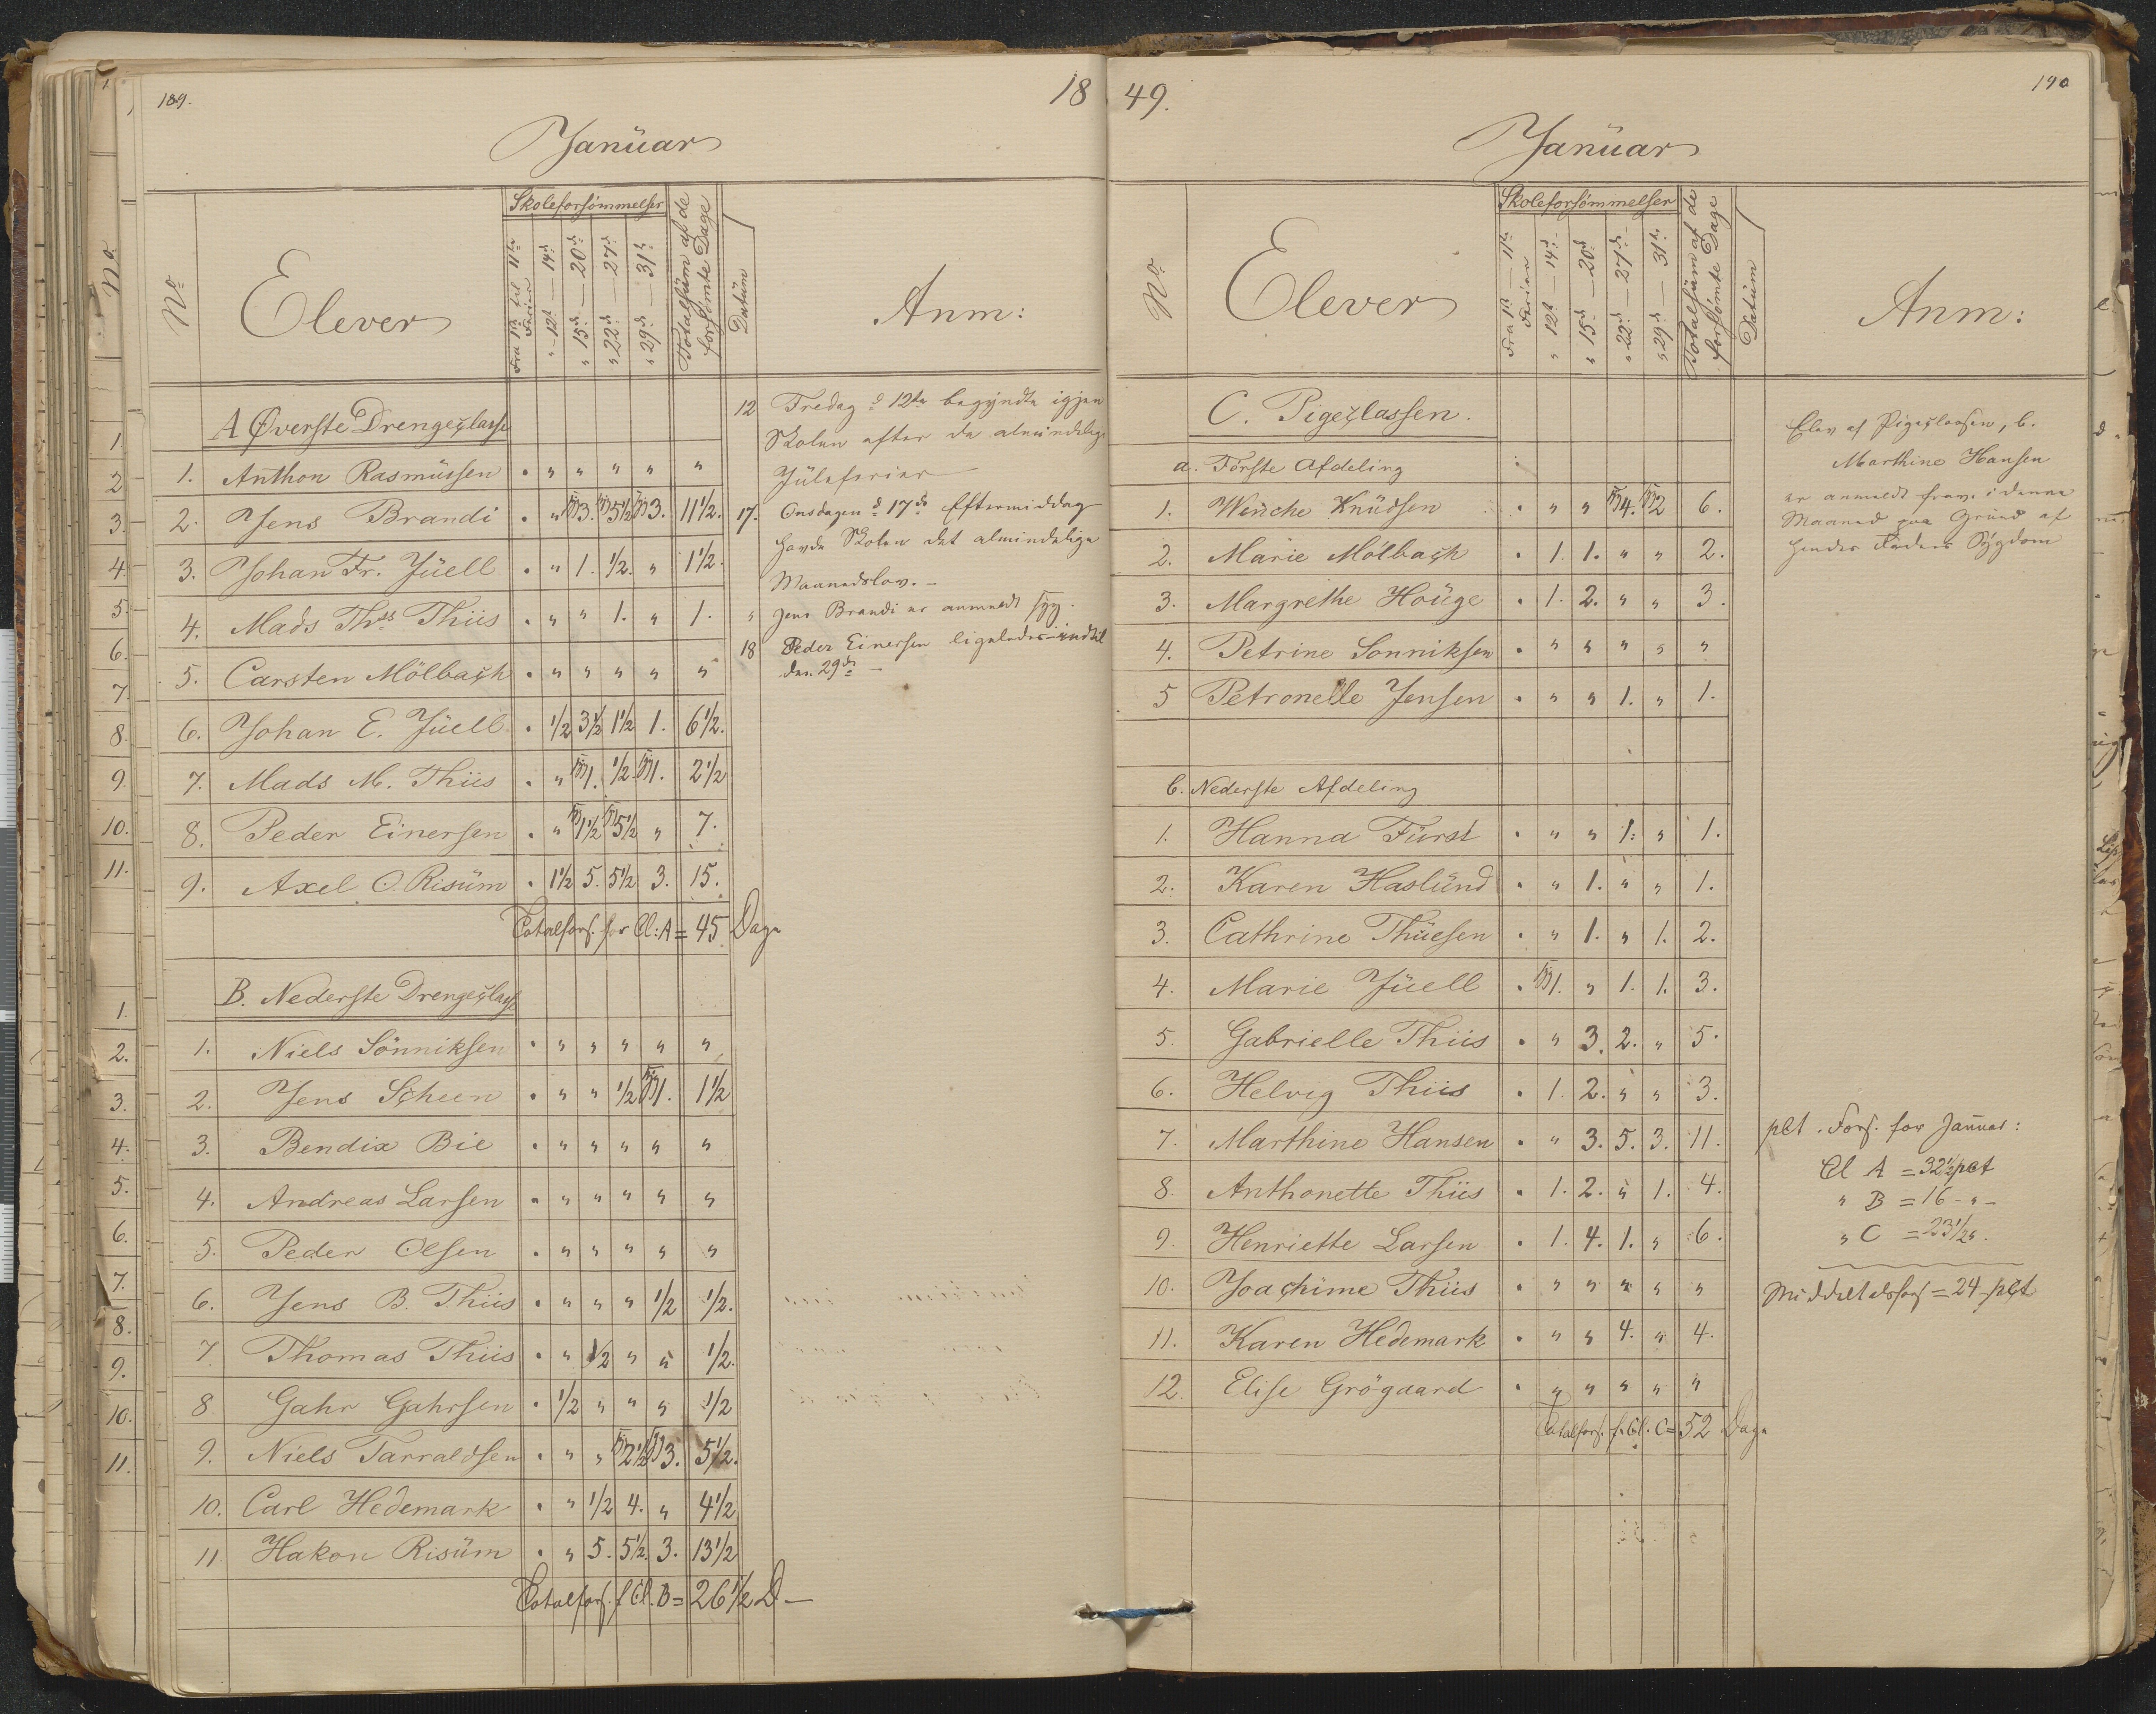 189.
18
Janüar
No
Elever
Skoleforsömmelser
Fra 1ste til 11te Ferien
" 12te — 14de
" 15de — 20de
" 22de — 27de
" 29de — 31te
Totalsüm af de forsömte Dage
Datüm
Anm:
A Øverste Drengeclasse
1. Anthon Rasmüssen . " " " " "
2. Jens Brandi . " syg 3. syg 5½ syg 3. 11½.
3. Johan Fr. Jüell . " 1. ½. " 1½.
4. Mads Ths Thiis . " " 1. " 1.
5. Carsten Mölbach . " " " " "
6. Johan E. Jüell . ½ 3½ 1½ 1. 6½.
7. Mads M. Thiis . " syg 1. ½. syg 1. 2½
8. Peder Einersen . " syg 1½ syg 5½ " 7.
9. Axel O. Risüm . 1½ 5. 5½ 3. 15.
Totalfors. for Cl: A = 45 Dage
B. Nederste Drengeclasse
1. Niels Sönniksen . " " " " "
2. Jens Scheen . " " ½ syg 1. 1½
3. Bendix Bie . " " " " "
4. Andreas Larsen . " " " " "
5. Peder Olsen . " " " " "
6. Jens B. Thiis . " " " ½ ½.
7. Thomas Thiis . " ½ " " ½.
8. Gahr Gahrsen . ½ " " " ½
9. Niels Tarraldsen . " " syg 2½ syg 3. 5½.
10. Carl Hedemark . " ½ 4. " 4½
11. Hakon Risüm . " 5. 5½ 3. 13½
Totalfors. f. Cl. B = 26½ D —
12 Fredag d 12te begyndte igjen
Skolen efter de almindelige
Jüleferier
17. Onsdagen d 17de Eftermiddag
havde Skolen det almindelige
Maanedslov. —
" Jens Brandi er anmeldt syg.
18 Peder Einersen ligeledes indtil
den 29de —
49.
190
Janüar
No
Elever
Skoleforsömmelser
Fra 1ste — 11te Ferien
" 12te — 14de
" 15de — 20de
" 22de — 27de
" 29de — 31te
Totalsüm af de forsömte Dage
Datüm
Anm:
C. Pigeclassen.
a. Förste Afdeling
1. Wenche Knüdsen . " " syg 4. syg 2 6.
2. Marie Mölbach . 1. 1. " " 2.
3. Margrethe Hoüge . 1. 2. " " 3.
4. Petrine Sonniksen . " " " " "
5 Petronelle Jensen . " " 1. " 1.
b. Nederste Afdeling
1. Hanna Fürst . " " 1. " 1.
2. Karen Haslünd . " 1. " " 1.
3. Cathrine Thüesen . " 1. " 1. 2.
4. Marie Jüell . syg 1. " 1. 1. 3.
5. Gabrielle Thiis . " 3. 2. " 5.
6. Helvig Thiis . 1. 2. " " 3.
7. Marthine Hansen . " 3. 5. 3. 11.
8. Anthonette Thiis . 1. 2. " 1. 4.
9. Henriette Larsen . 1. 4. 1. " 6.
10. Joachime Thiis . " " " " "
11. Karen Hedemark . " " 4. " 4.
12. Elise Grögaard . " " " " "
Totalfors. f. Cl. C = 52 Dage
Elev af Pigeclassen, b.
Marthine Hansen
er anmeldt frav. i denne
Maaned paa Grund af
hendes Faders Sygdom
pCt. Fors. for Januar:
Cl A = 32½ pCt
" B = 16 - " -
" C = 23½ ".
Middeltalsfors = 24 pCt
No
1
2
3.
4.
5.
6.
7.
8.
9.
10.
11.
1.
2.
3.
4.
5.
6.
7.
8.
9.
10.
11.